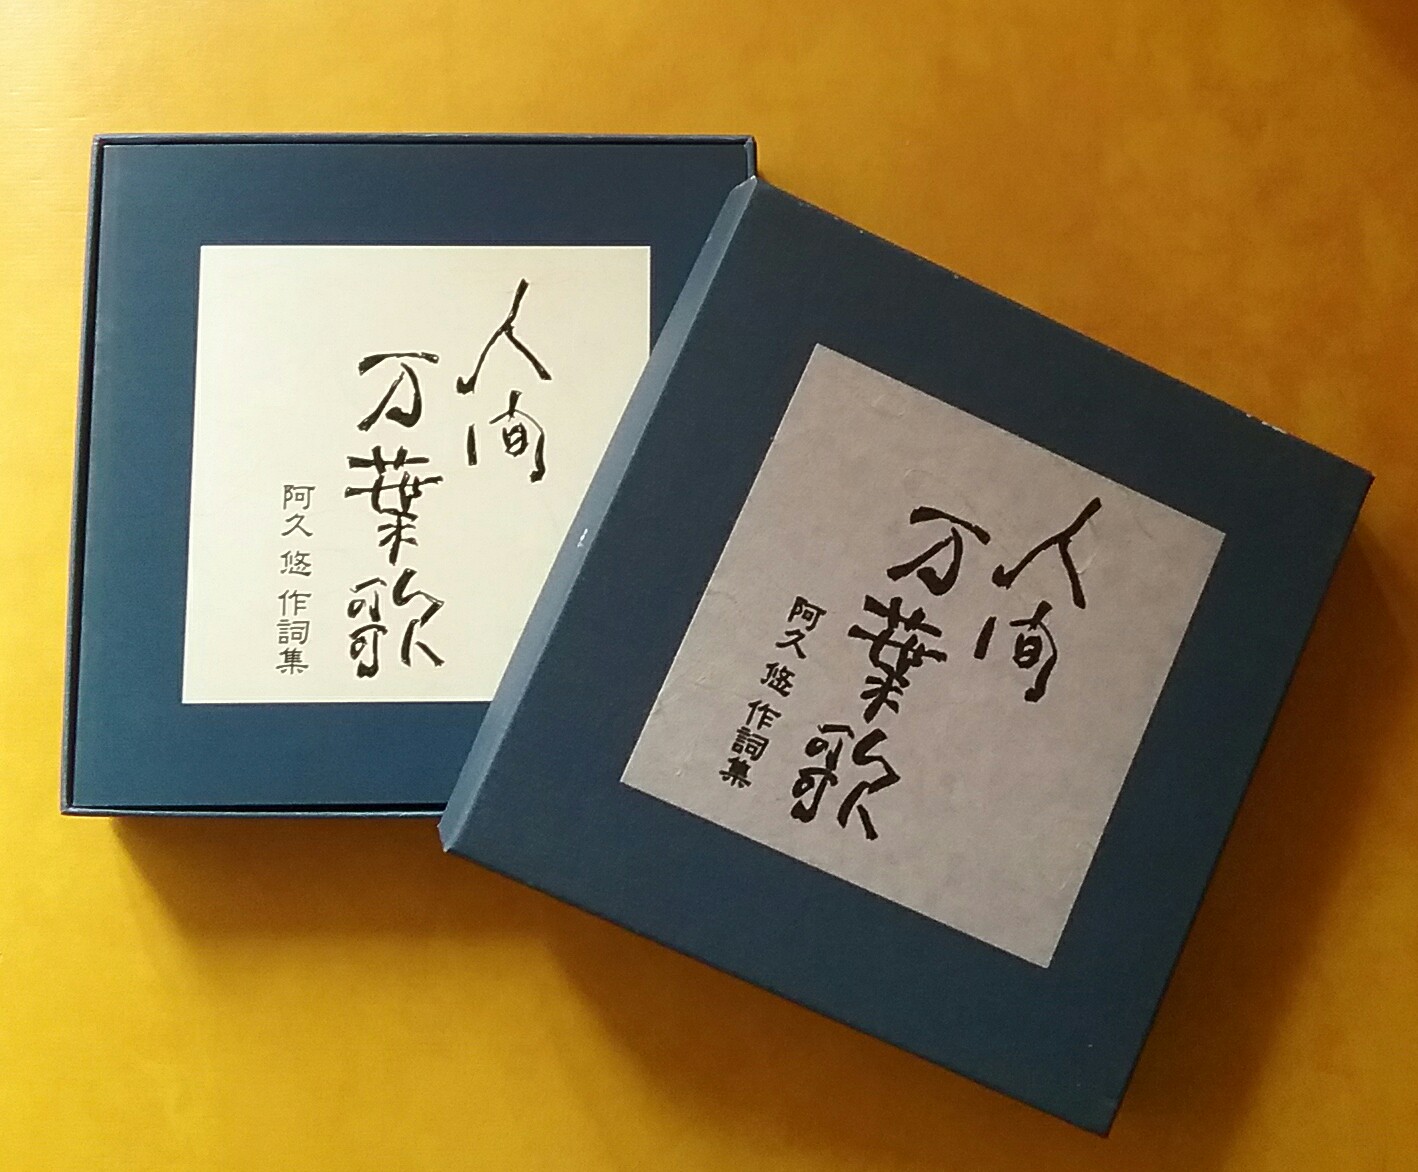 人間
万葉歌
阿久 悠 作詞集
人間
万葉歌
阿久 悠 作詞集